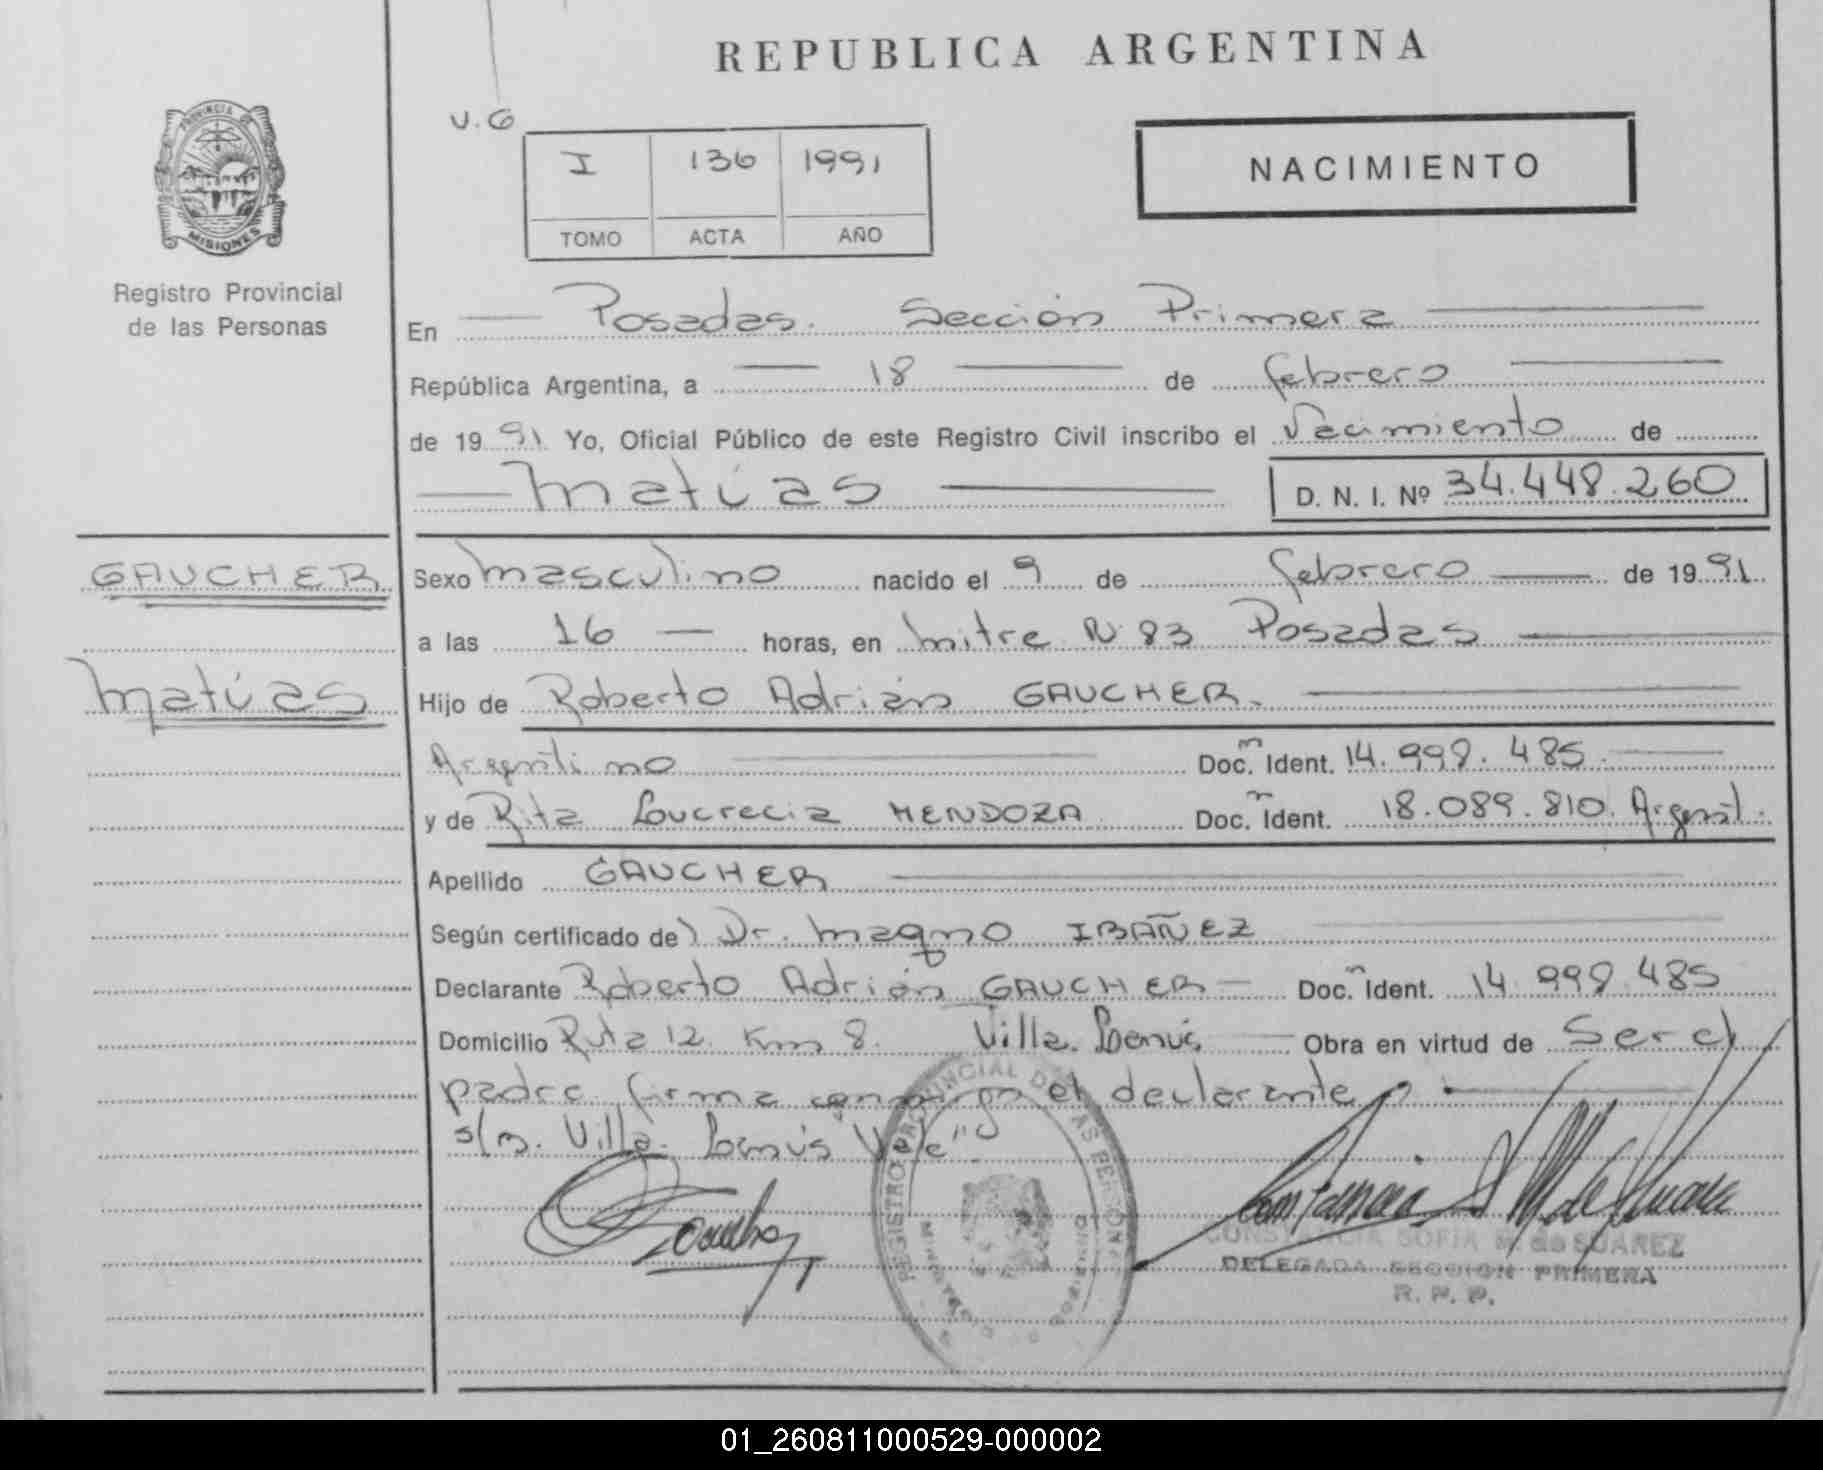 REPUBLICA ARGENTINA
PROVINCIA DE MISIONES
Registro Provincial
de las Personas
V. G
I 136 1991
TOMO ACTA AÑO
NACIMIENTO
En Posadas. Sección Primera
República Argentina, a 18 de febrero
de 1991 Yo, Oficial Público de este Registro Civil inscribo el Nacimiento de
Matías D. N. I. Nº 34.448.260
GAUCHER
Matías
Sexo masculino nacido el 9 de febrero de 1991
a las 16 horas, en Mitre N 83 Posadas
Hijo de Roberto Adrián GAUCHER.
Argentino Doc. Ident. 14.998.485
y de Rita Loucrecia MENDOZA Doc. Ident. 18.089.810. Argent.
Apellido GAUCHER
Según certificado de) Dr. Magno IBAÑEZ
Declarante Roberto Adrián GAUCHER Doc. Ident. 14.998.485
Domicilio Ruta 12 Km 8. Villa Lanús Obra en virtud de Ser el
padre firma conmigo el declarante
s/r. Villa. Lanús Vale"
REGISTRO PROVINCIAL DE LAS PERSONAS
CONSTANCIA SOFIA M. de SUAREZ
DELEGADA SECCION PRIMERA
R. P. P.
01_260811000529-000002